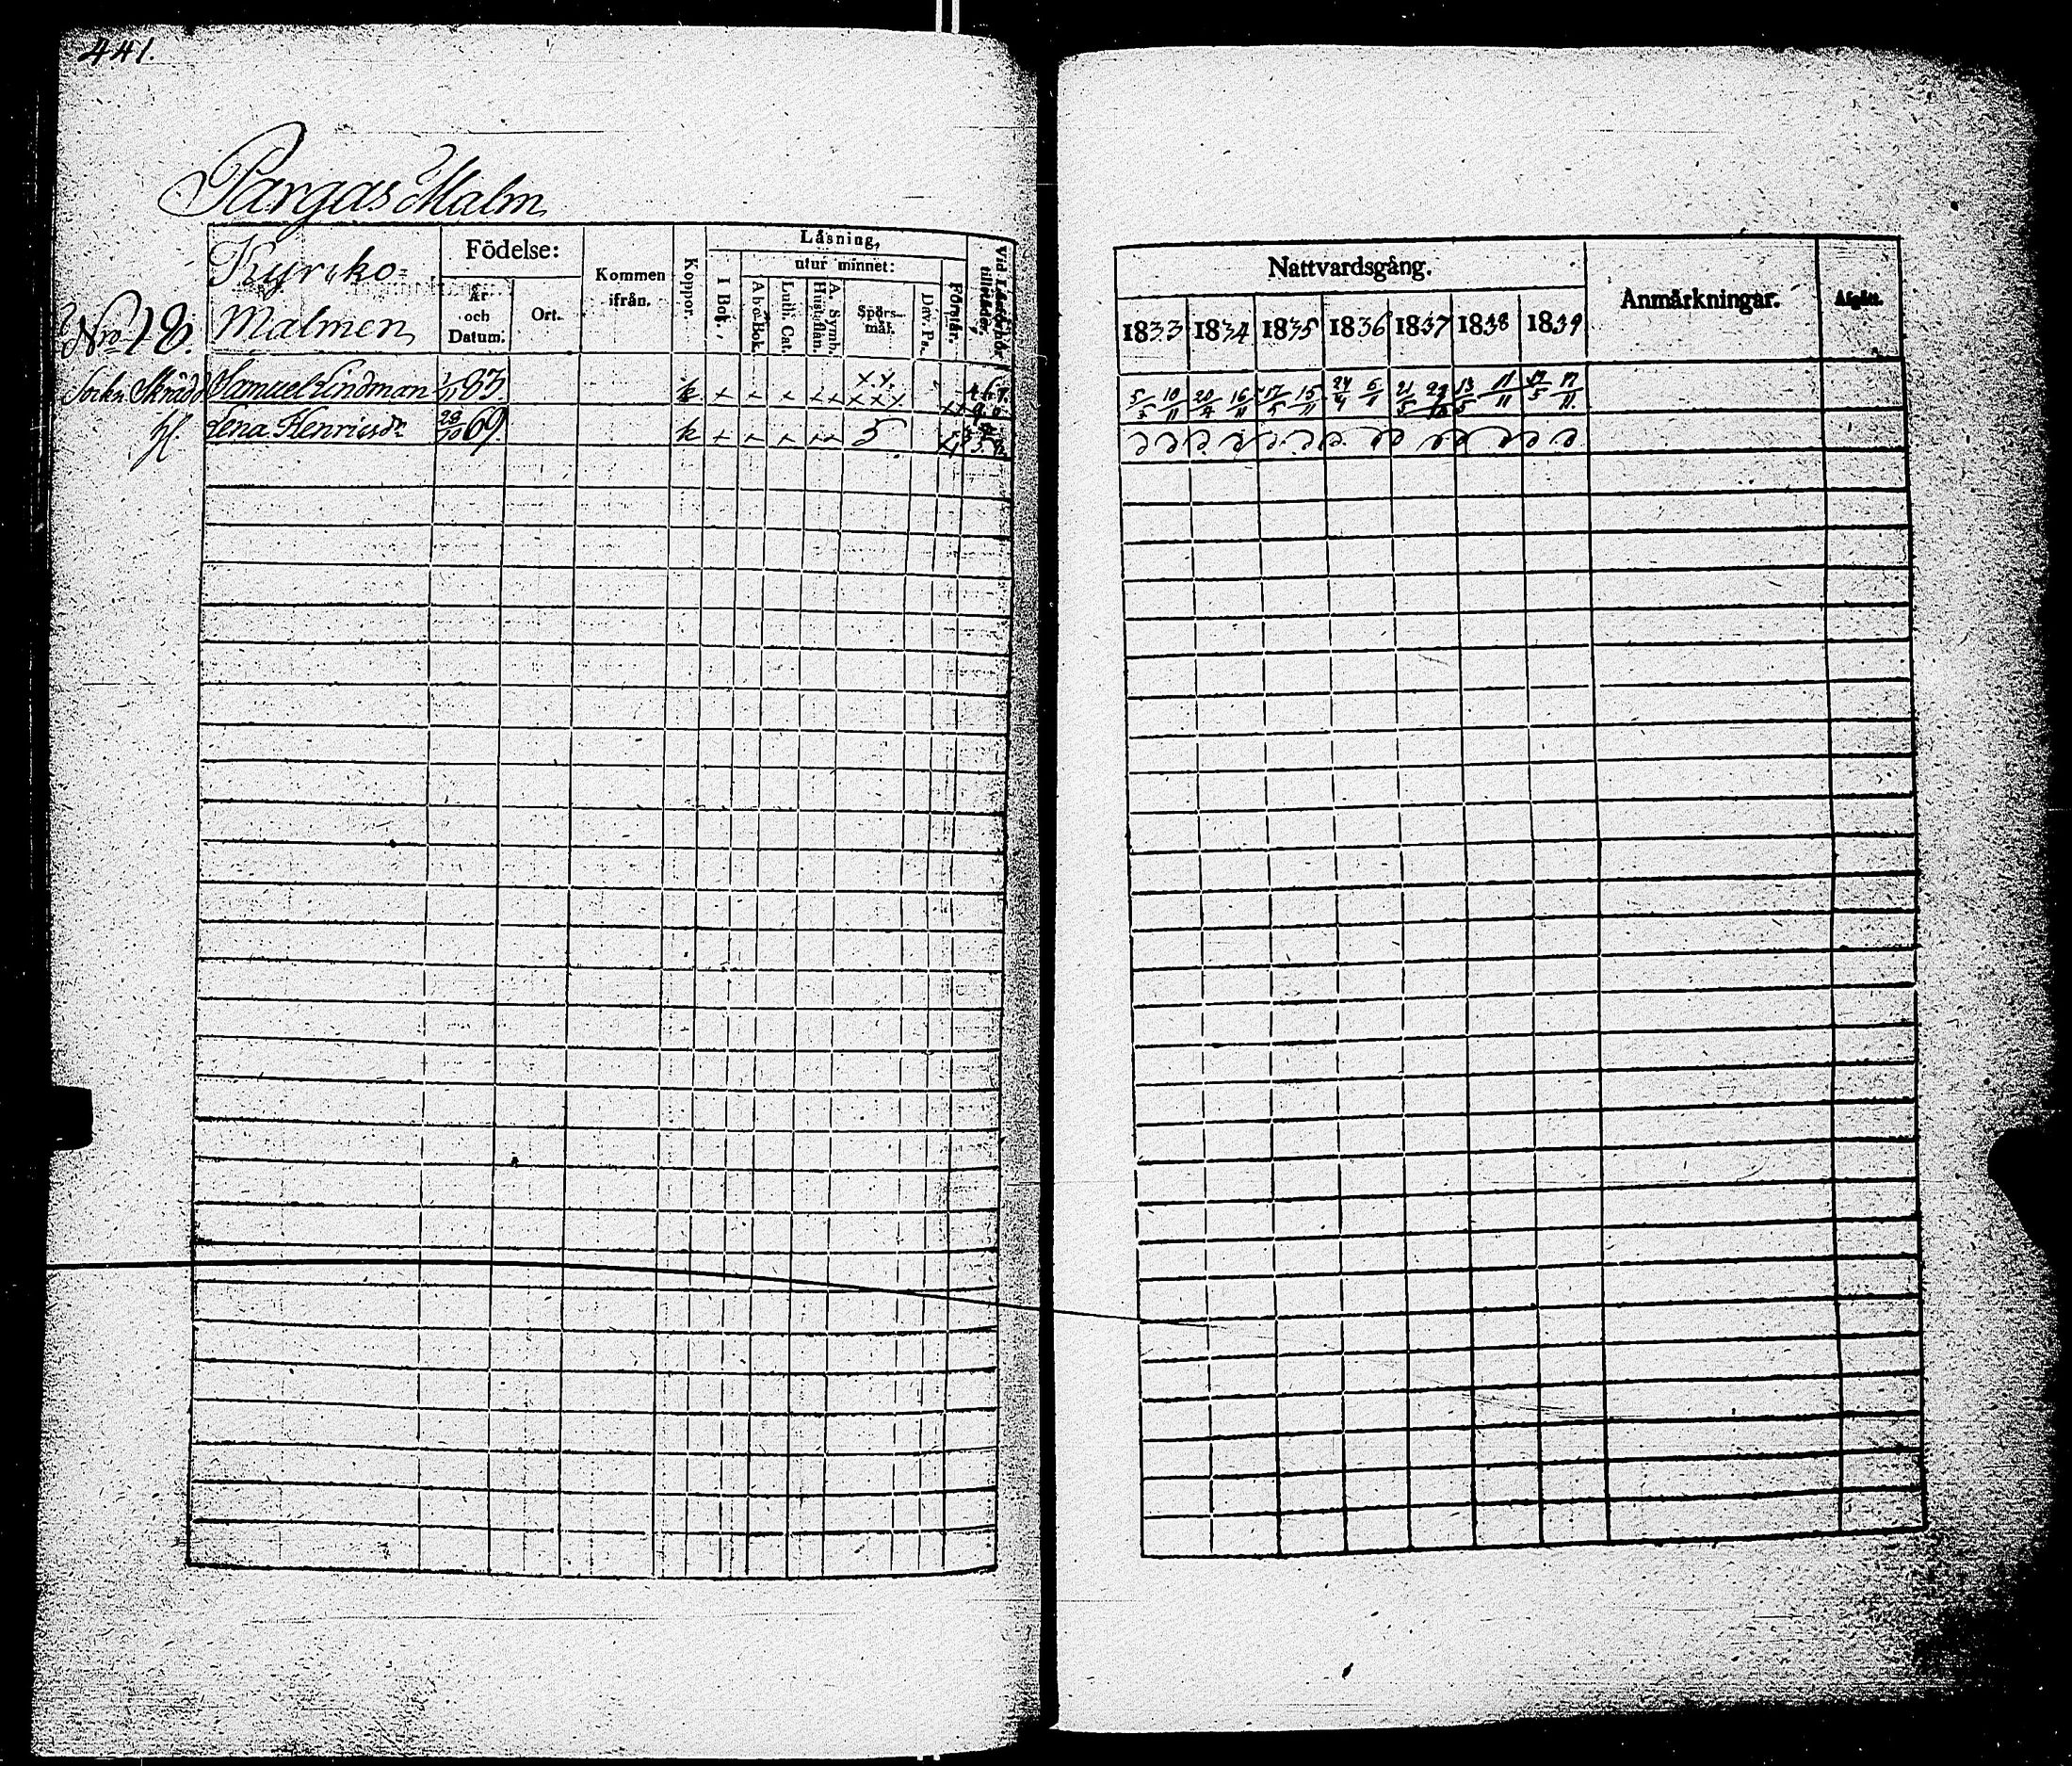 441.
Pargas Malm
Kyriko-
Malmen
Nro 18.
Födelse:
År och Datum.
Ort.
Kommen ifrån.
Koppor.
Läsning,
I Bok.
utur minnet:
A b c-Bok.
Luth. Cat.
A. Symb. Hust.flan.
Spörs-mål.
Dav. Ps.
Förstår.
Vid Läseförhör tillstädes,
Sockn Skrädd Samuel Lindman 1/11 83. k + + + ++ xx xxx
H. Lena Henricsdr 28/10 69. k + + + ++ 5
Nattvardsgång.
1833 1834 1835 1836 1837 1838 1839
Anmärkningar.
Afgått.
5/5 10/11 20/4 16/11 17/5 15/11 24/4 6/11 21/5 29/10 13/5 11/11 17/5 17/11